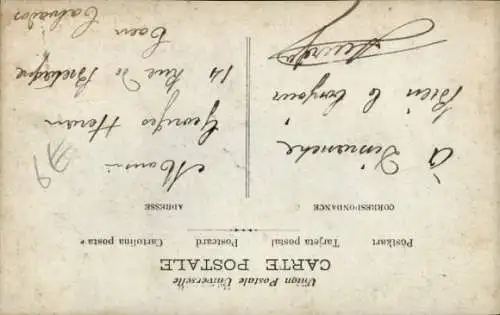 Union Postale Universelle
CARTE POSTALE
Postkart Tarjeta postal Postcard Cartolina postale
CORRESPONDANCE
ADRESSE
à Dimanche
Bien le bonjour
Georges
14 Rue de Bretagne
Caen
Calvados